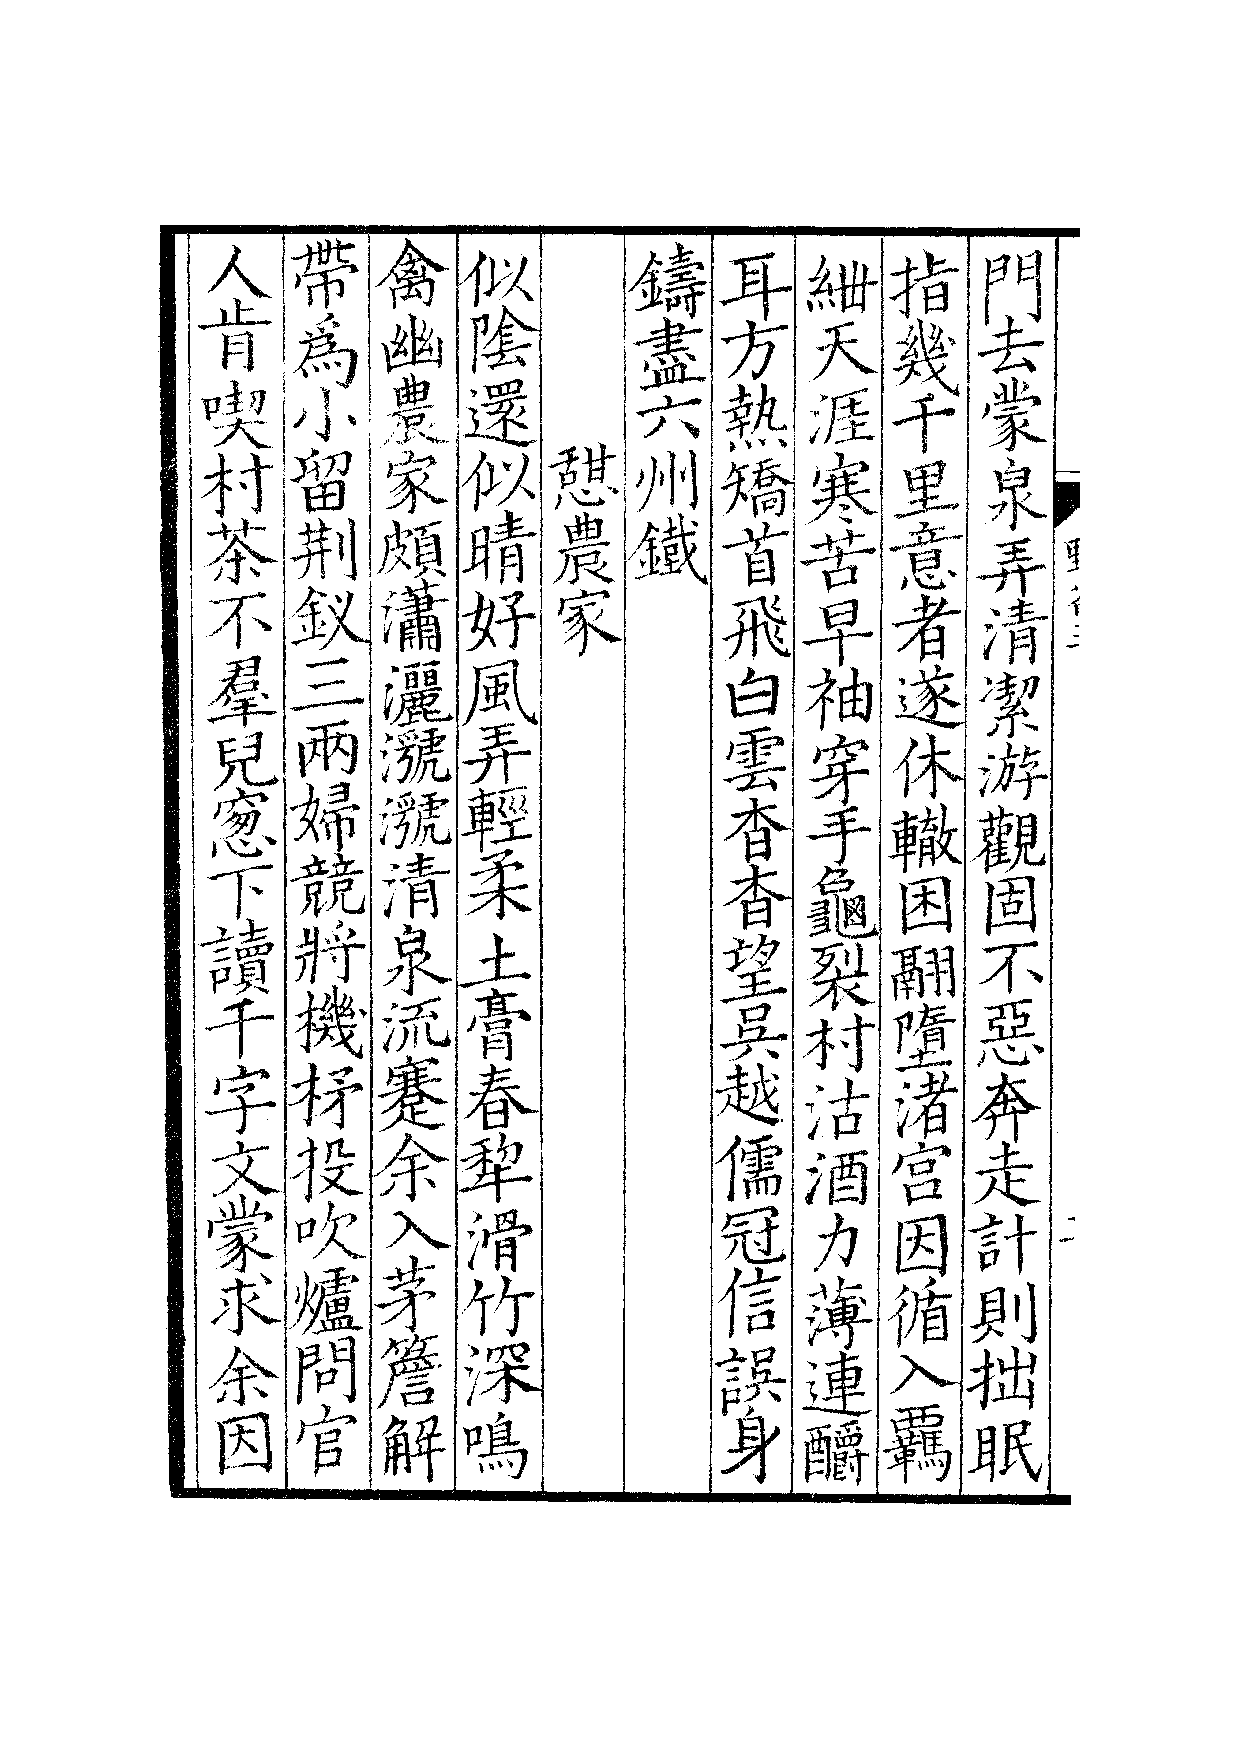 門去蒙泉弄清潔游觀固不惡奔走計則拙眠
指幾千里意者遂休轍困翮墮渚宮因循入羈
紲天涯寒苦早袖穿手龜裂村沽酒力薄連釂
耳方熱矯首飛白雲杳杳望吳越儒冠信誤身
鑄盡六州鐵
憇農家
似陰還似晴好風弄輕柔土膏春犂滑竹深鳴
禽幽農家頗瀟灑㶁㶁清泉流蹇余入茅簷解
帶爲小留荆釵三兩婦競將機杼投吹爐問官
人肯喫村茶不羣兒窓下讀千字文蒙求余因